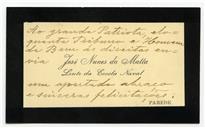 Ao grande Patriota, elo-
quente Tribuno e Homem
de Bem ás direitas en-
via
José Nunes da Matta
Lente da Escola Naval
um apertado abraço
e sinceras felicitações.
PAREDE